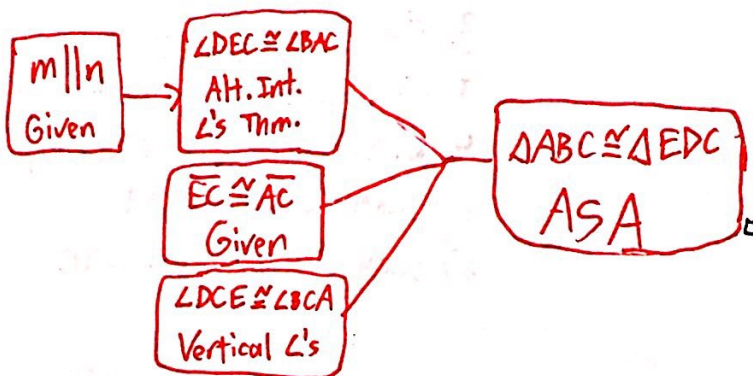 m||n
Given
∠DEC≅∠BAC
Alt. Int.
∠'s Thm.
E̅C̅≅A̅C̅
Given
∠DCE≅∠BCA
Vertical ∠'s
ΔABC≅ΔEDC
ASA